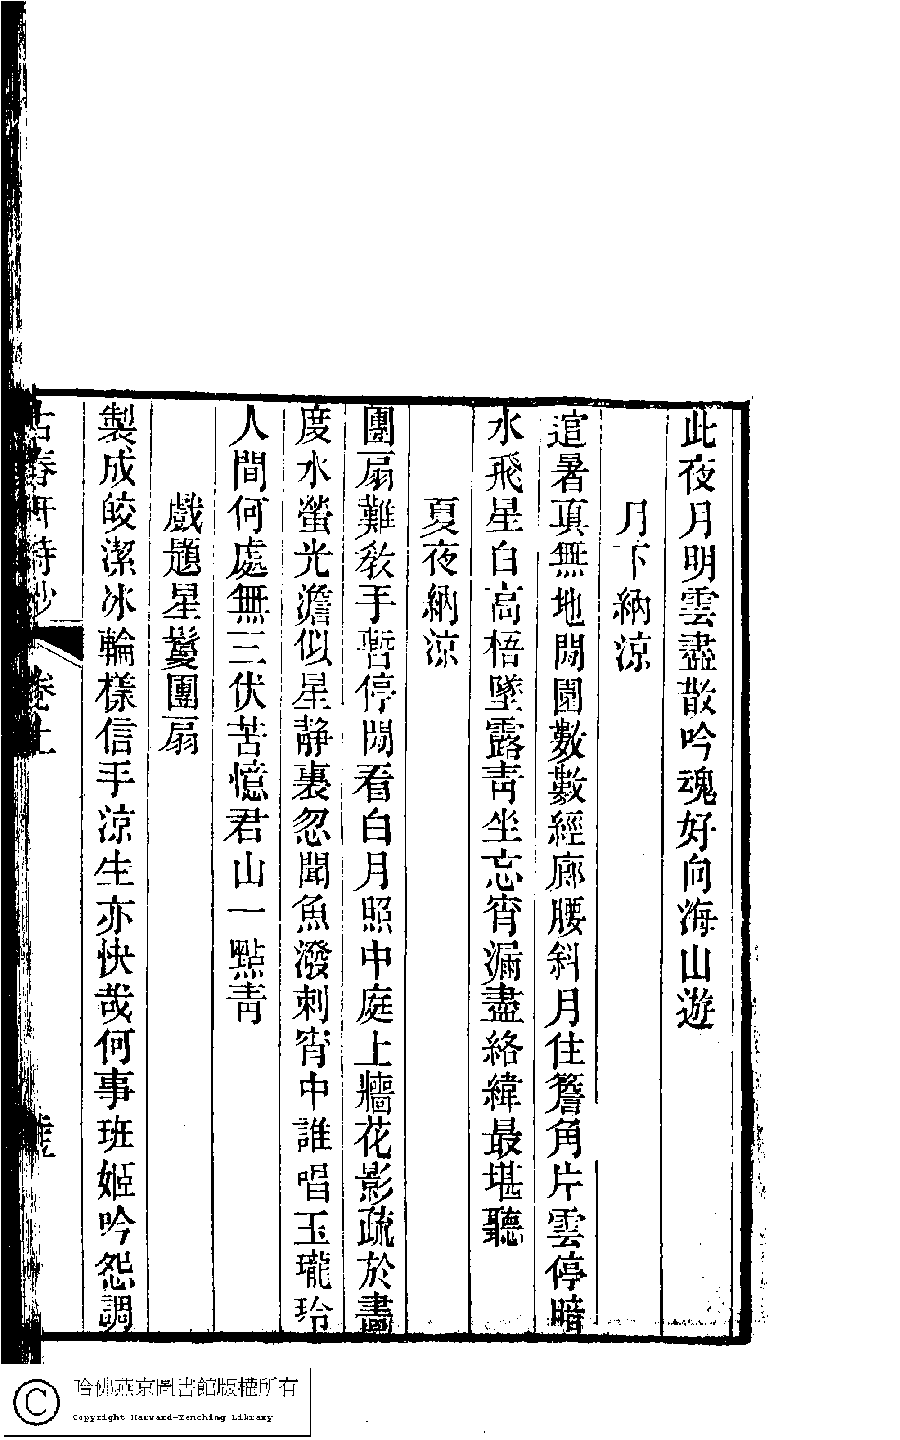 此夜月明雲盡散吟魂好向海山遊
月下納涼
逭暑真無地閒園數數經廊腰斜月住簷角片雲停暗
水飛星白高梧墜露青坐忘宵漏盡絡緯最堪聽
夏夜納涼
團扇難教手暫停閒看白月照中庭上牆花影疏於畫
度水螢光澹似星靜裏忽聞魚潑刺宵中誰唱玉瓏玲
人間何處無三伏苦憶君山一點青
戲題星鬘團扇
製成皎潔冰輪樣信手涼生亦快哉何事班姬吟怨調
春軒詩鈔 卷上
哈佛燕京圖書館版權所有
Copyright Harvard-Yenching Library